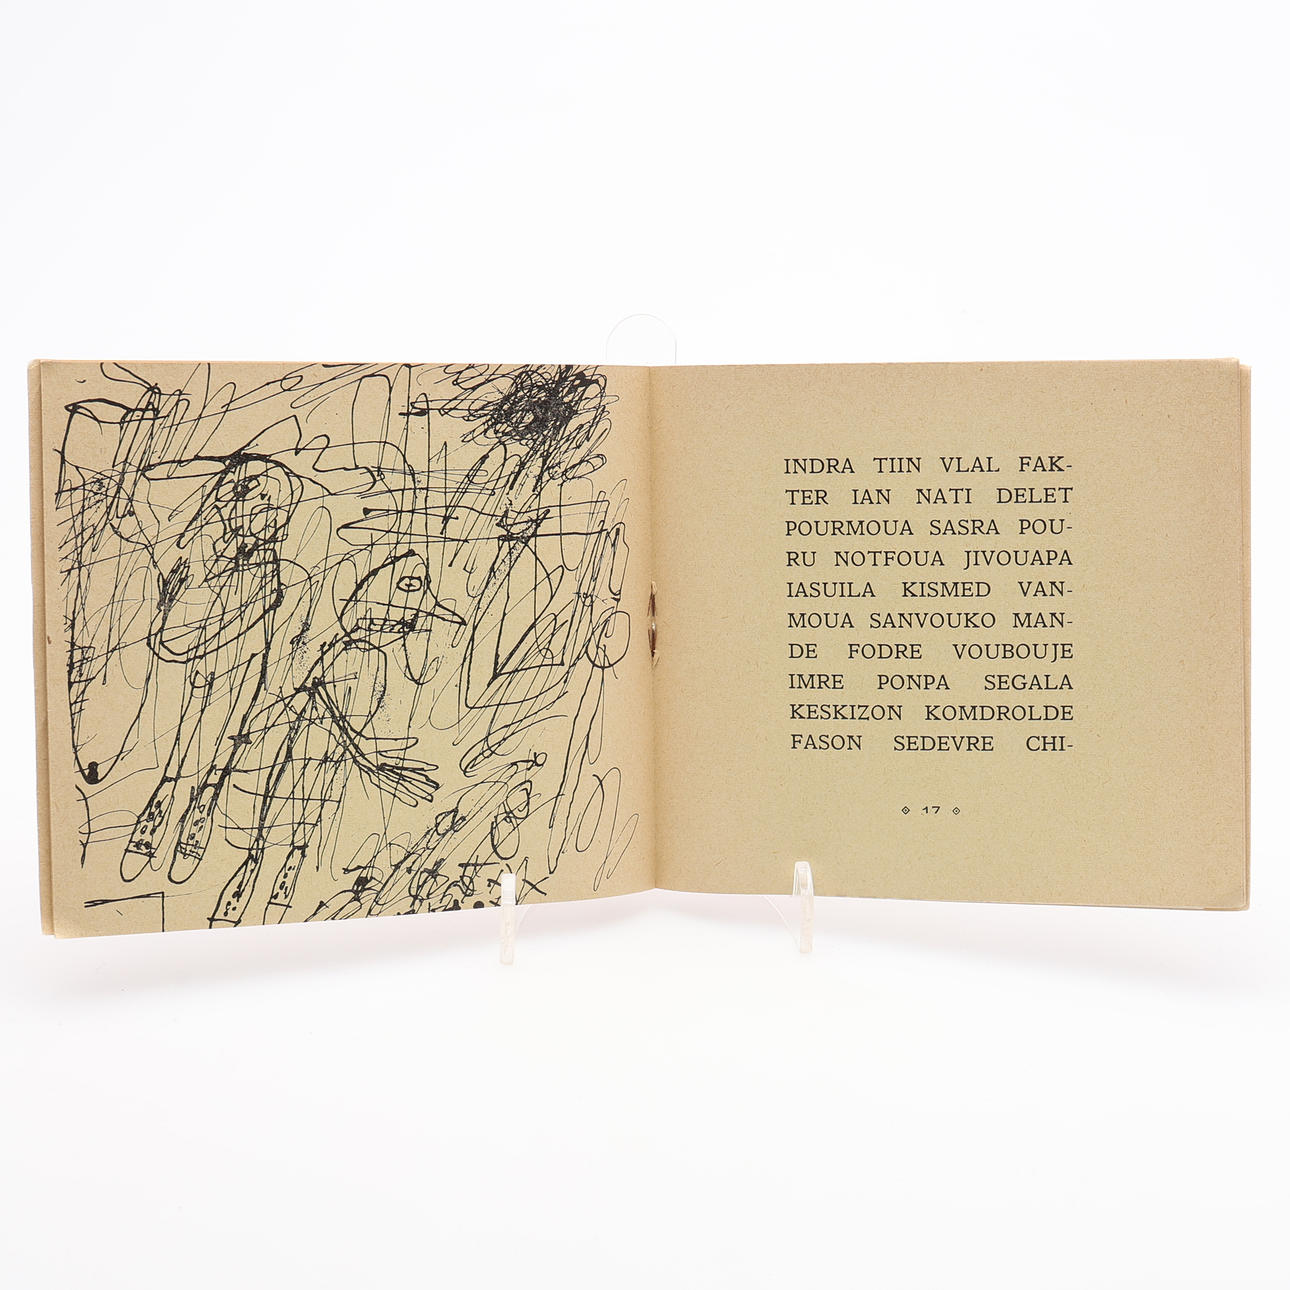 INDRA TIIN VLAL FAK-
TER IAN NATI DELET
POURMOUA SASRA POU-
RU NOTFOUA JIVOUAPA
IASUILA KISMED VAN-
MOUA SANVOUKO MAN-
DE FODRE VOUBOUJE
IMRE PONPA SEGALA
KESKIZON KOMDROLDE
FASON SEDEVRE CHI-
17